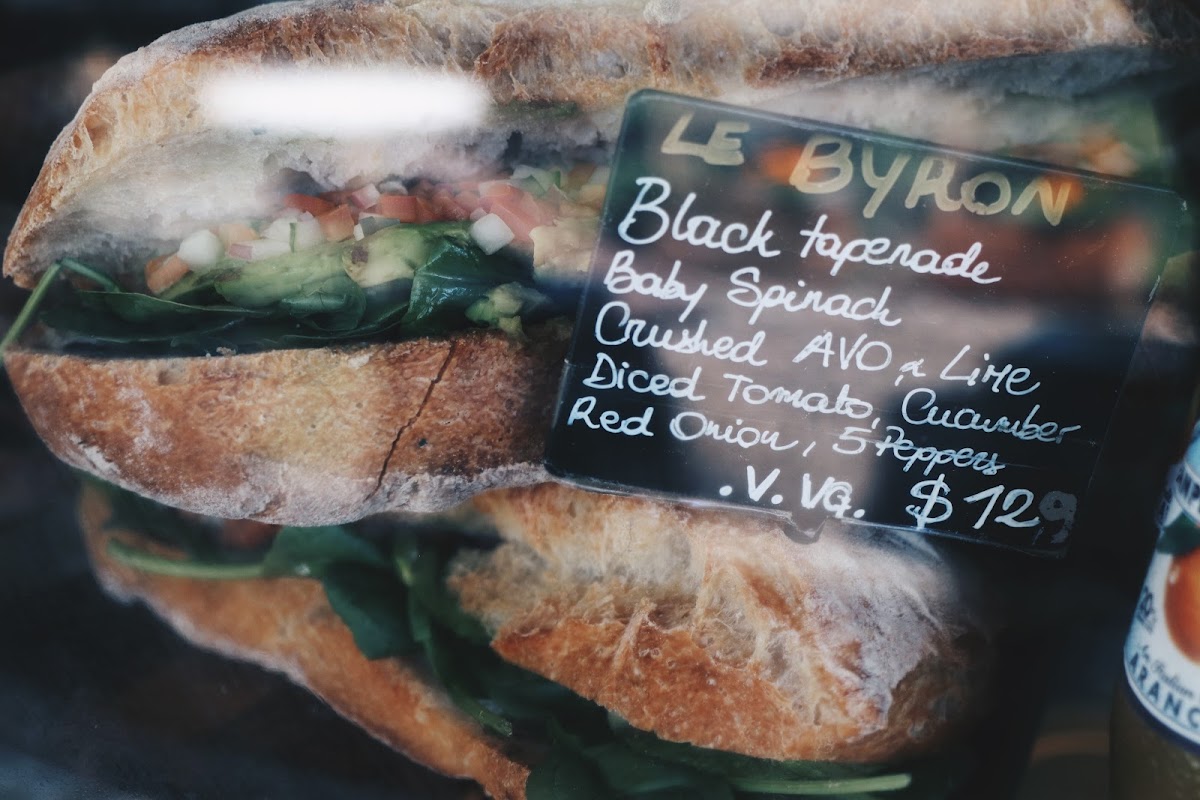 LE BYRON
Black tapenade
Baby Spinach
Crushed AVO & LiMe
Diced Tomato, Cucumber
Red Onion, 5 Peppers
.V. VG. $12
ARANC